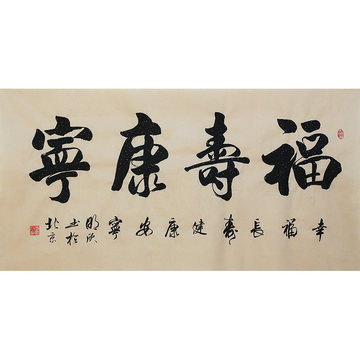 福壽康寧
幸福長壽健康安寧
明
书於
北京